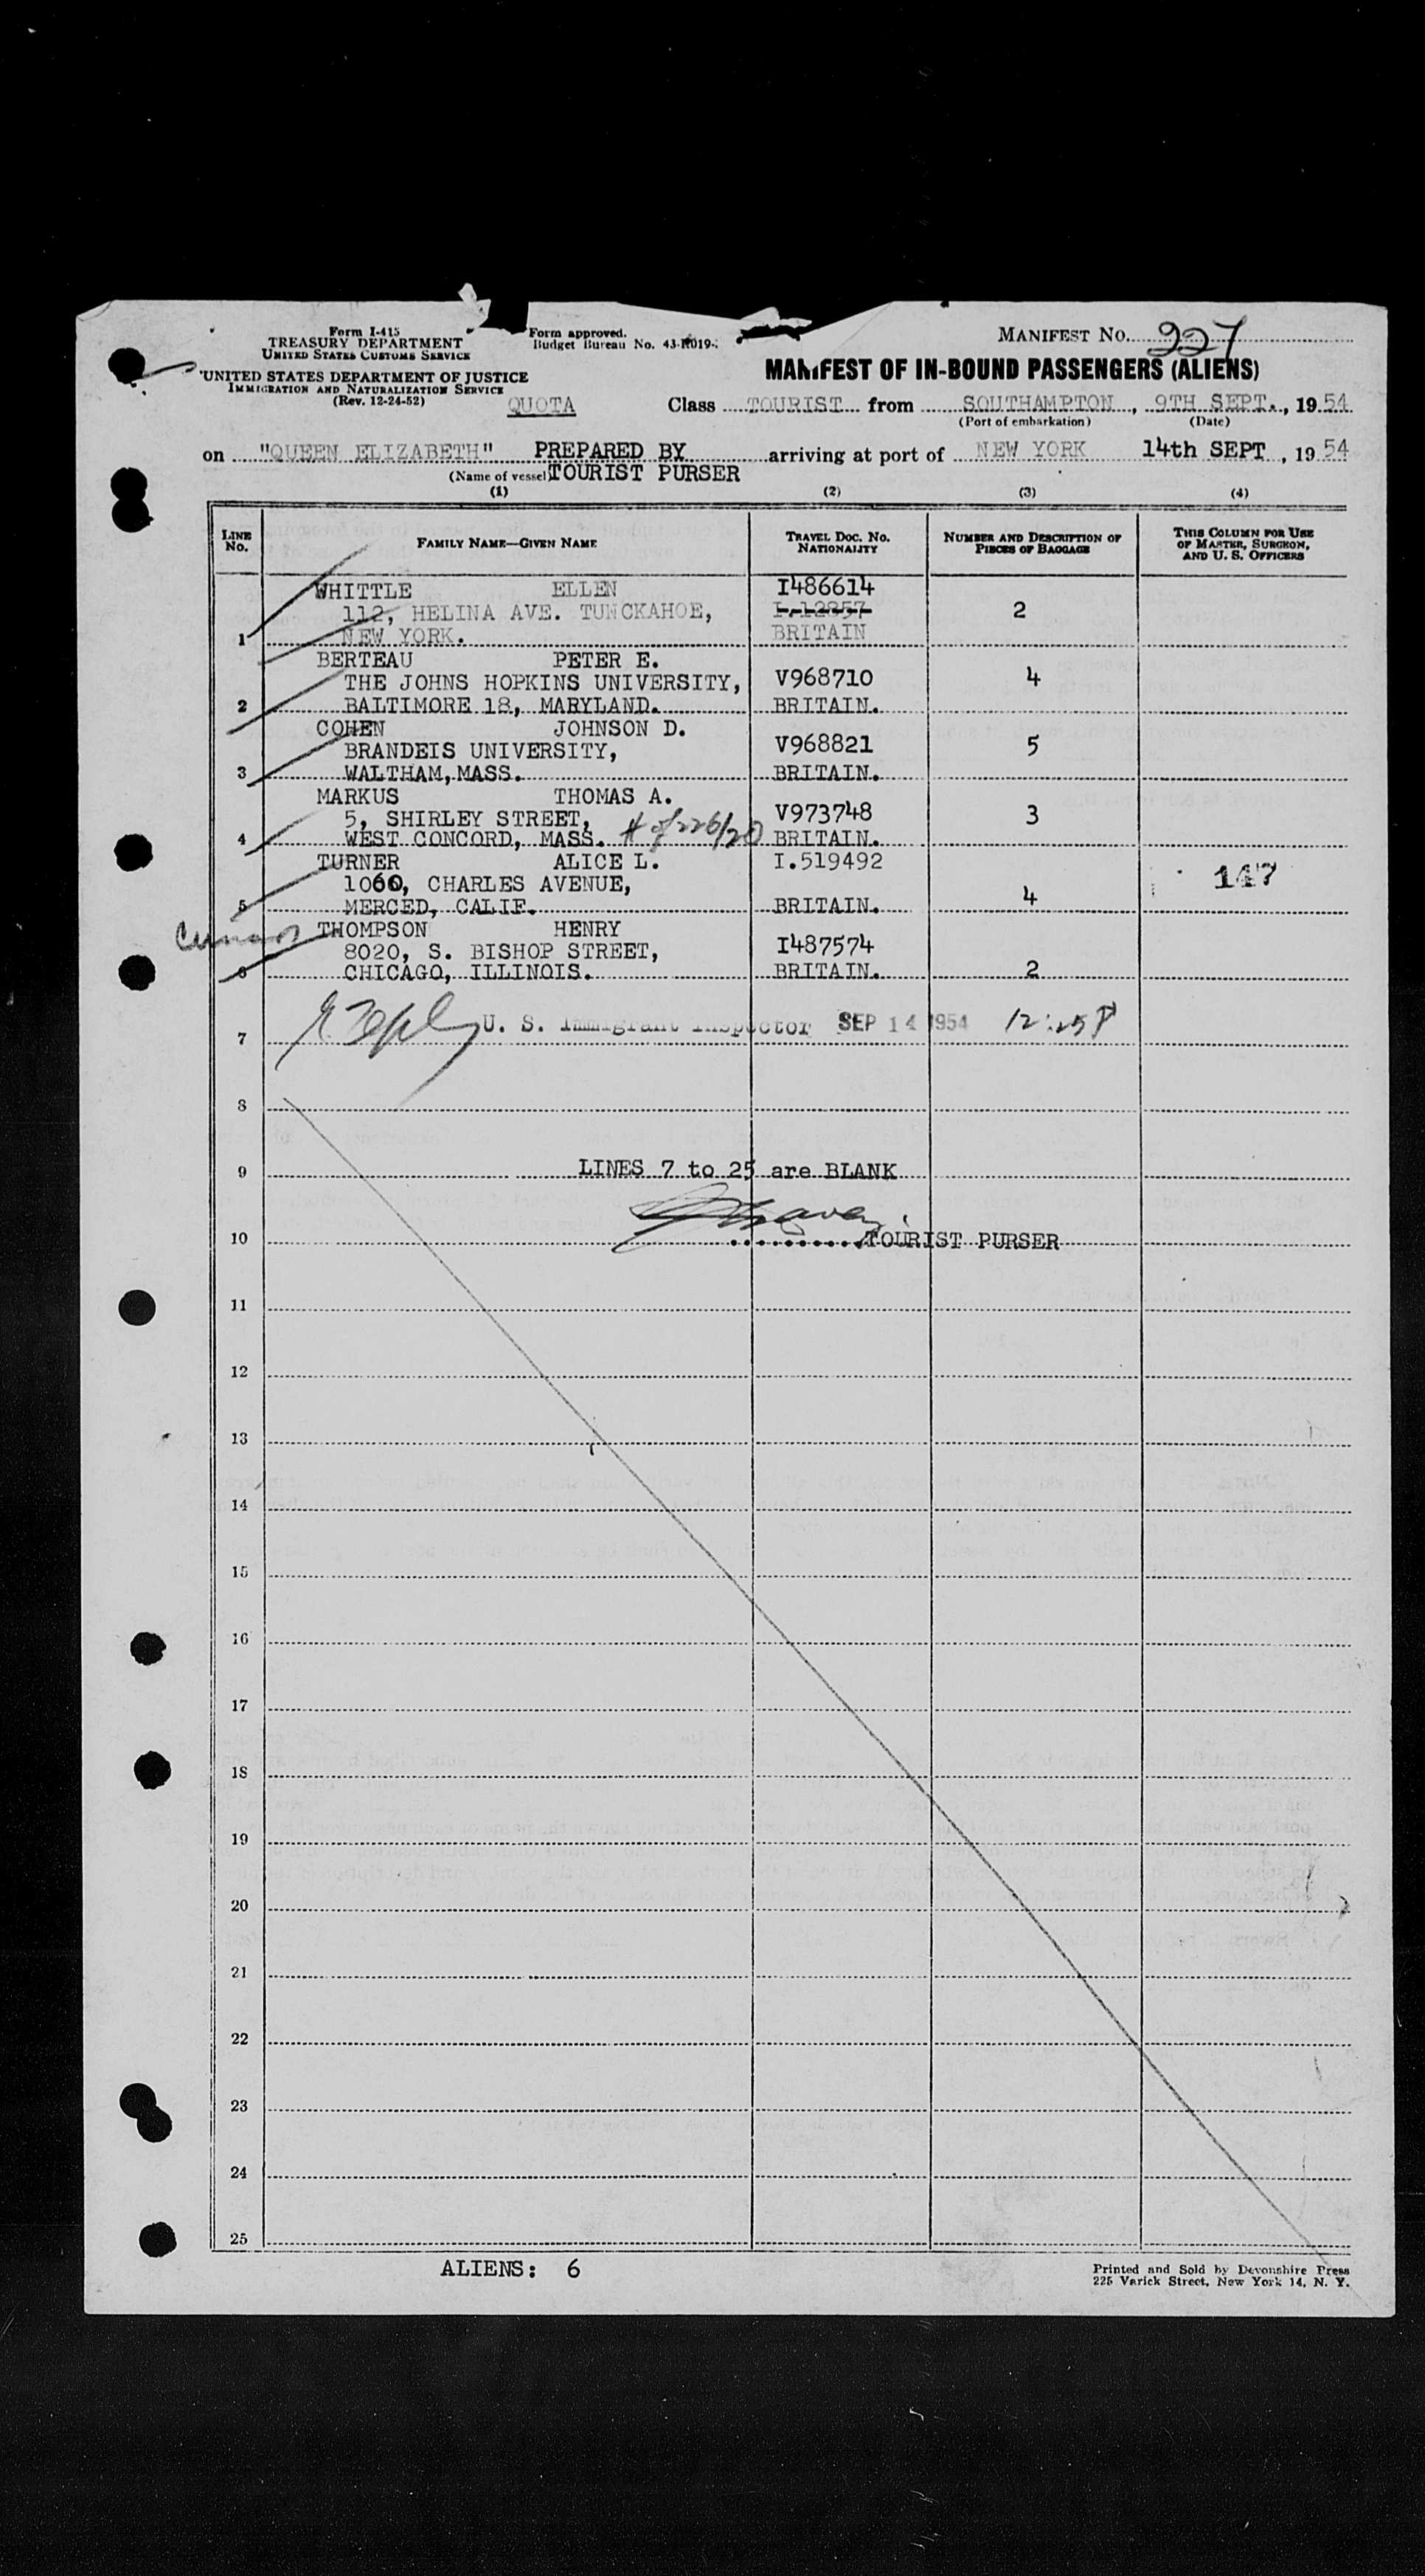 Form I-415
TREASURY DEPARTMENT
UNITED STATES CUSTOMS SERVICE
UNITED STATES DEPARTMENT OF JUSTICE
IMMIGRATION AND NATURALIZATION SERVICE
(Rev. 12-24-52)
Form approved.
Budget Bureau No. 43-R019-
MANIFEST No. 227
MANIFEST OF IN-BOUND PASSENGERS (ALIENS)
QUOTA Class TOURIST from SOUTHAMPTON, 9TH SEPT., 1954
(Port of embarkation) (Date)
on "QUEEN ELIZABETH" PREPARED BY arriving at port of NEW YORK 14th SEPT, 1954
(Name of vessel) TOURIST PURSER
(1) (2) (3) (4)
LINE No. FAMILY NAME—GIVEN NAME TRAVEL DOC. NO. NATIONALITY NUMBER AND DESCRIPTION OF PIECES OF BAGGAGE THIS COLUMN FOR USE OF MASTER, SURGEON, AND U. S. OFFICERS
WHITTLE ELLEN I486614
112, HELINA AVE. TUNCKAHOE, I.12857 2
1 NEW YORK. BRITAIN
BERTEAU PETER E.
THE JOHNS HOPKINS UNIVERSITY, V968710 4
2 BALTIMORE 18, MARYLAND. BRITAIN.
COHEN JOHNSON D.
BRANDEIS UNIVERSITY, V968821 5
3 WALTHAM, MASS. BRITAIN.
MARKUS THOMAS A.
5, SHIRLEY STREET, V973748 3
4 WEST CONCORD, MASS. # of 226/20 BRITAIN.
TURNER ALICE L. I.519492
1060, CHARLES AVENUE, 147
5 MERCED, CALIF. BRITAIN. 4
THOMPSON HENRY
8020, S. BISHOP STREET, I487574
6 CHICAGO, ILLINOIS. BRITAIN. 2
7 U. S. Immigrant Inspector SEP 14 1954 12:25 P
8
9 LINES 7 to 25 are BLANK
10 TOURIST PURSER
11
12
13
14
15
16
17
18
19
20
21
22
23
24
25
ALIENS: 6
Printed and Sold by Devonshire Press
225 Varick Street, New York 14, N. Y.